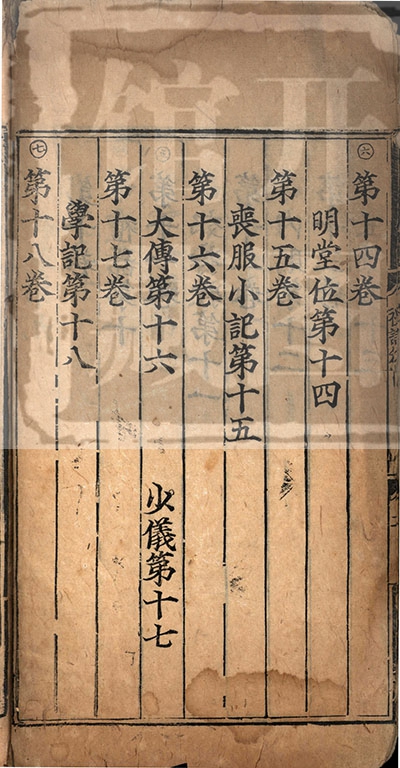 六
第十四卷
明堂位第十四
第十五卷
喪服小記第十五
第十六卷
大傳第十六 少儀第十七
第十七卷
學記第十八
七
第十八卷